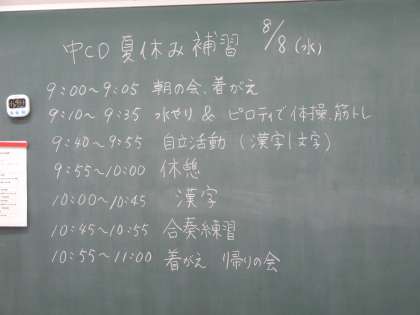 中CD 夏休み補習 8/8(水)
9:00～9:05 朝の会、着がえ
9:10～9:35 水やり & ピロティで体操、筋トレ
9:40～9:55 自立活動(漢字1文字)
9:55～10:00 休憩
10:00～10:45 漢字
10:45～10:55 合奏練習
10:55～11:00 着がえ 帰りの会